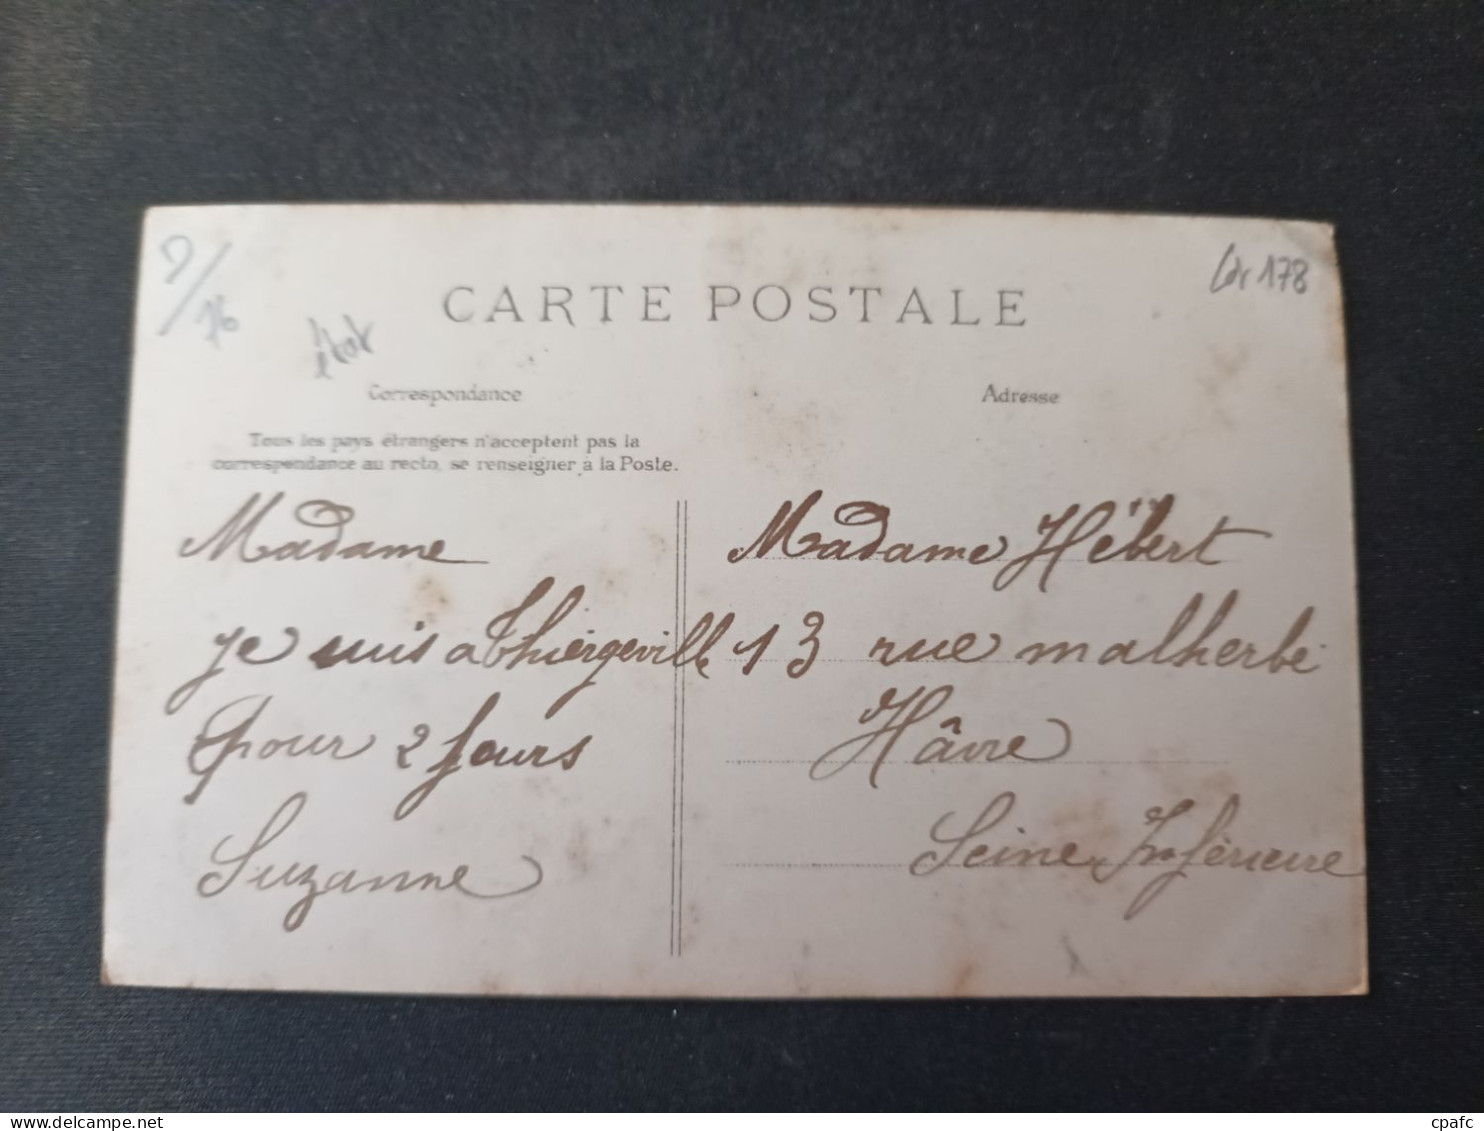 D/76
état
178
CARTE POSTALE
Correspondance
Adresse
Tous les pays étrangers n'acceptent pas la
correspondance au recto, se renseigner à la Poste.
Madame
je suis a Thiergeville
pour 2 jours
Suzanne
Madame Hébert
13 rue malherbe
Hâvre
Seine Inférieure
cpafc